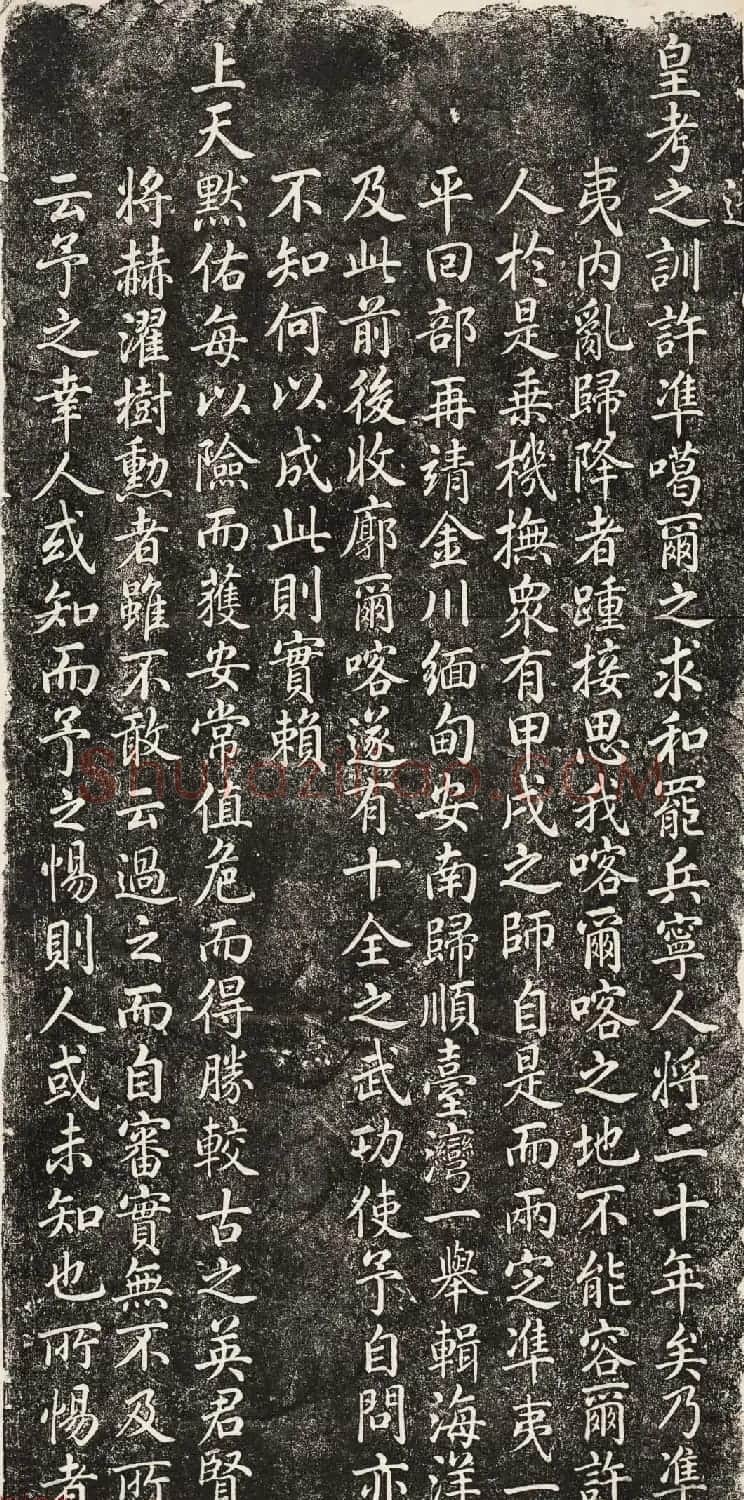 皇考之訓許準噶爾之求和罷兵寧人將二十年矣乃準
夷内亂歸降者踵接思我喀爾喀之地不能容爾許
人於是乗機撫衆有甲戌之師自是而兩定準夷一
平回部再靖金川緬甸安南歸順臺灣一舉輯海洋
及此前後收廓爾喀遂有十全之武功使予自問亦
不知何以成此則實賴
上天黙佑每以險而獲安常值危而得勝較古之英君賢
將赫濯樹勳者雖不敢云過之而自審實無不及所
云予之幸人或知而予之惕則人或未知也所惕者
Shufaziliao.COM